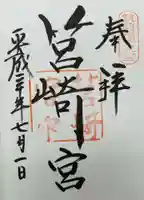 奉拝
筥崎宮
平成三十年七月一日